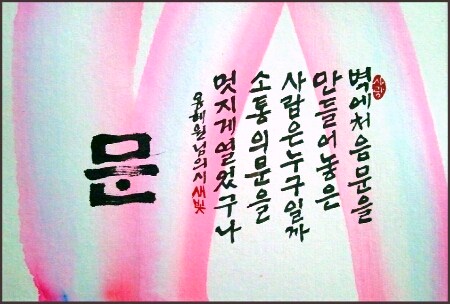 사랑
벽에 처음 문을
만들어 놓은
사람은 누구일까
소통의 문을
멋지게 열었구나
용혜원님의 시 새빛
문